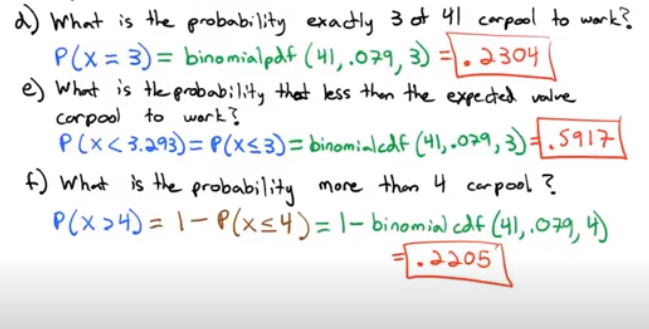 d) What is the probability exactly 3 of 41 carpool to work?
P(X = 3) = binomialpdf (41, .079, 3) = .2304
e) What is the probability that less than the expected value
carpool to work?
P(X < 3.293) = P(X ≤ 3) = binomialcdf (41, .079, 3) = .5917
f) What is the probability more than 4 carpool?
P(X > 4) = 1 - P(X ≤ 4) = 1 - binomial cdf (41, .079, 4)
= .2205